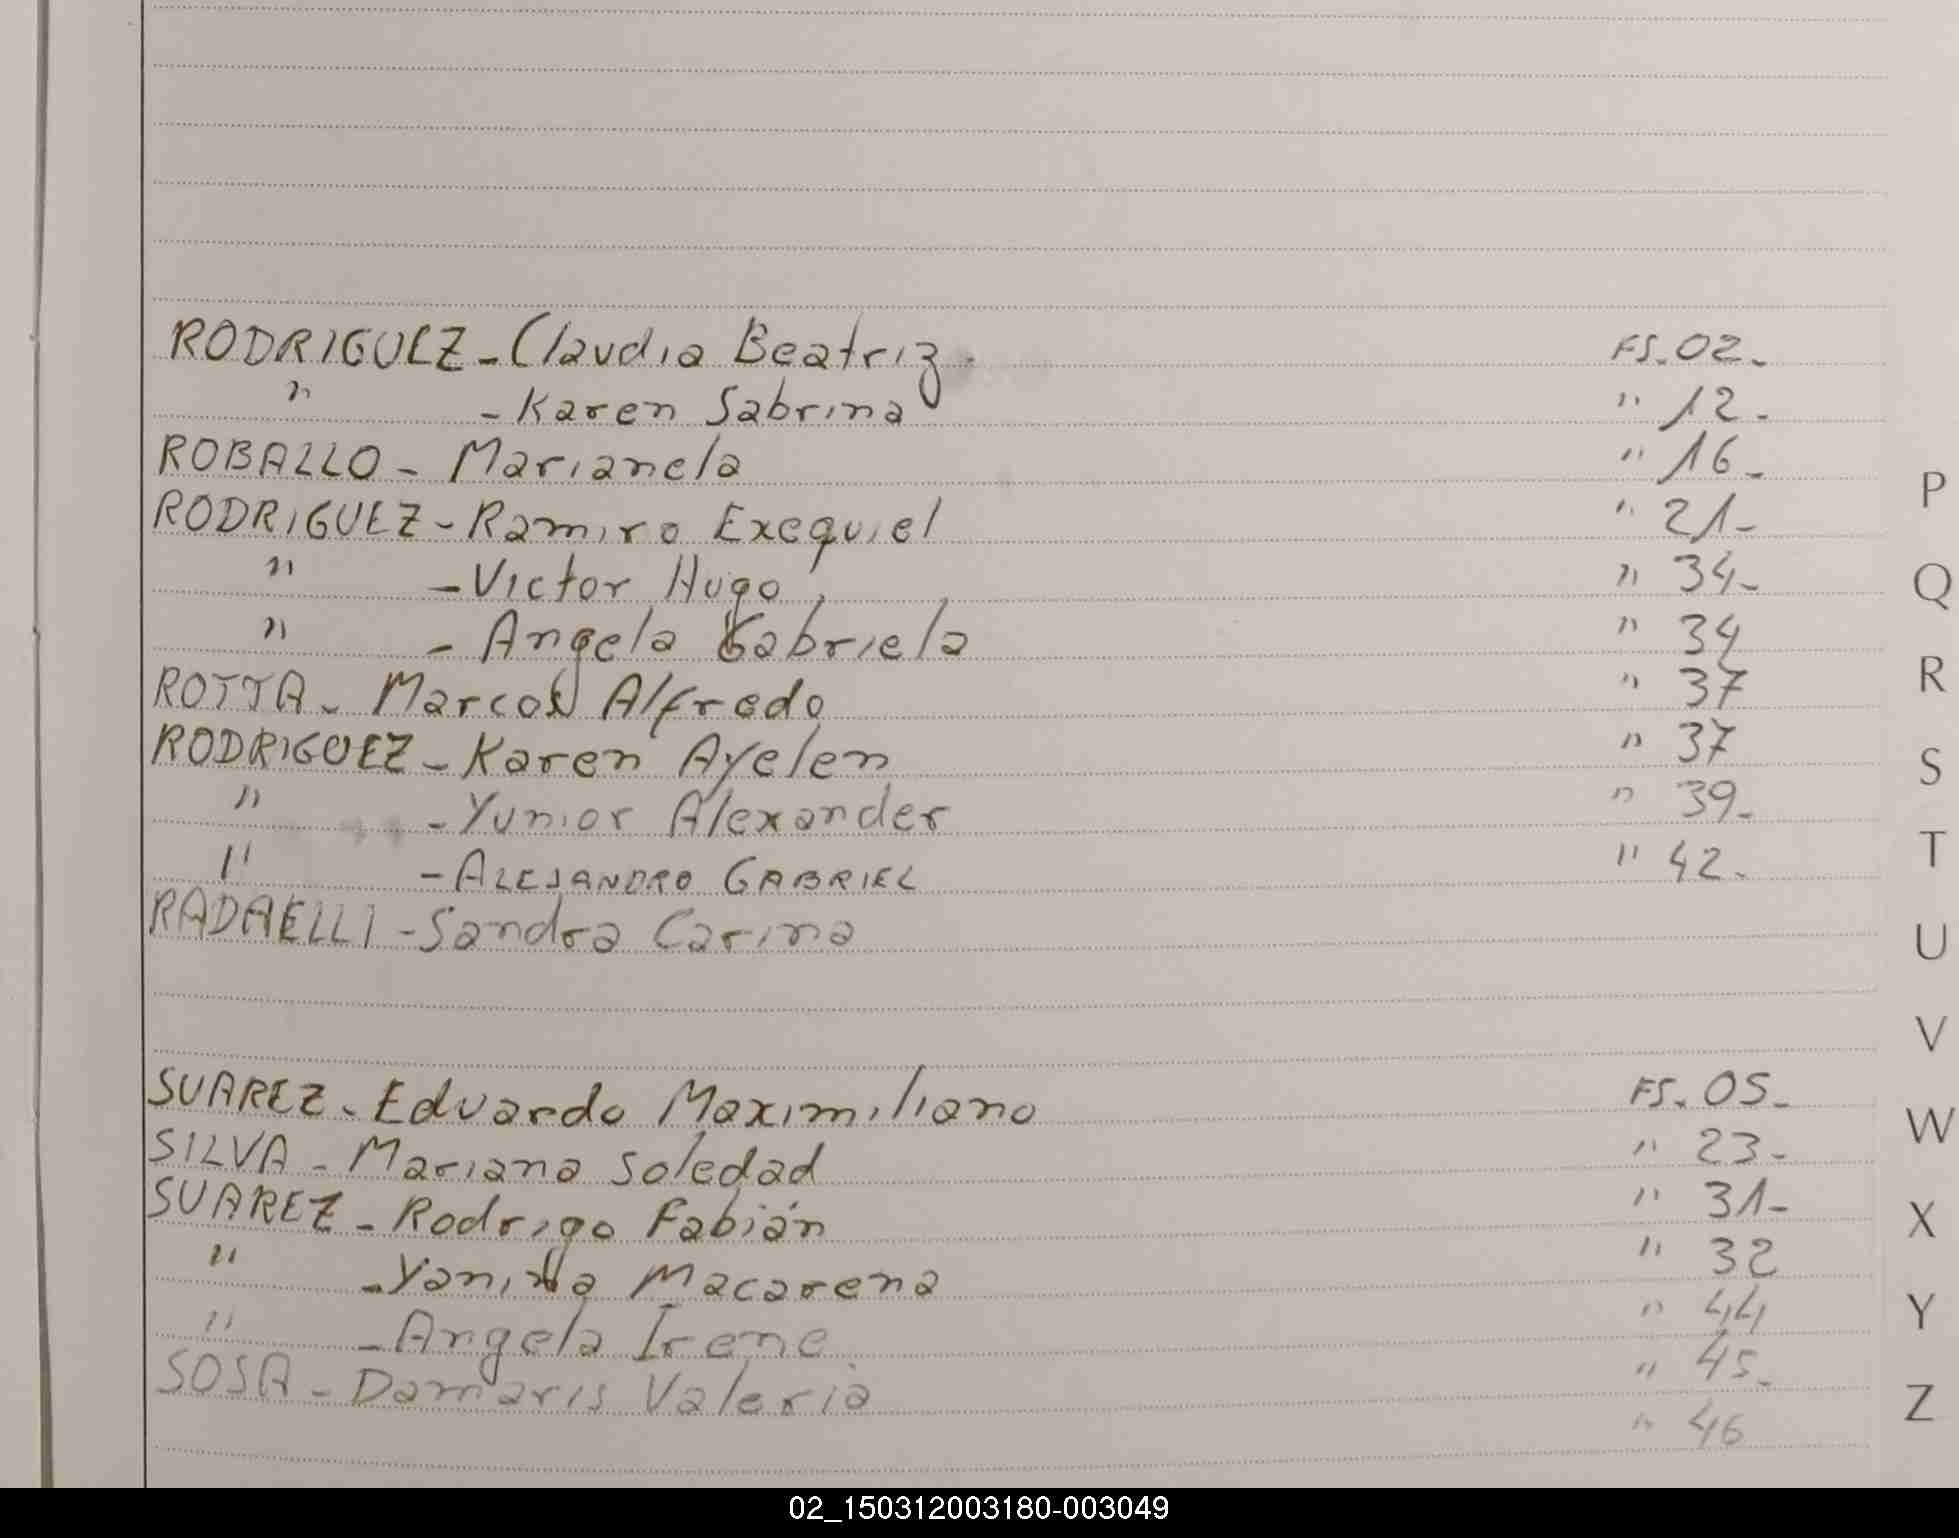 RODRIGUEZ - Claudia Beatriz. FS. 02 -
" - Karen Sabrina " 12 -
ROBALLO - Marianela " 16 -
RODRIGUEZ - Ramiro Exequiel " 21 -
" - Victor Hugo " 34 -
" - Angela Gabriela " 34
ROTTA - Marcos Alfredo " 37
RODRIGUEZ - Karen Ayelen " 37
" - Yunior Alexander " 39 -
" - ALEJANDRO GABRIEL " 42 -
RADAELLI - Sandra Carina
SUAREZ - Eduardo Maximiliano FS. 05 -
SILVA - Mariana Soledad " 23 -
SUAREZ - Rodrigo Fabián " 31 -
" - Macarena " 32
" - Angela Irene " 44
SOSA - Damaris Valeria " 45 -
" 46
P
Q
R
S
T
U
V
W
X
Y
Z
02_150312003180-003049